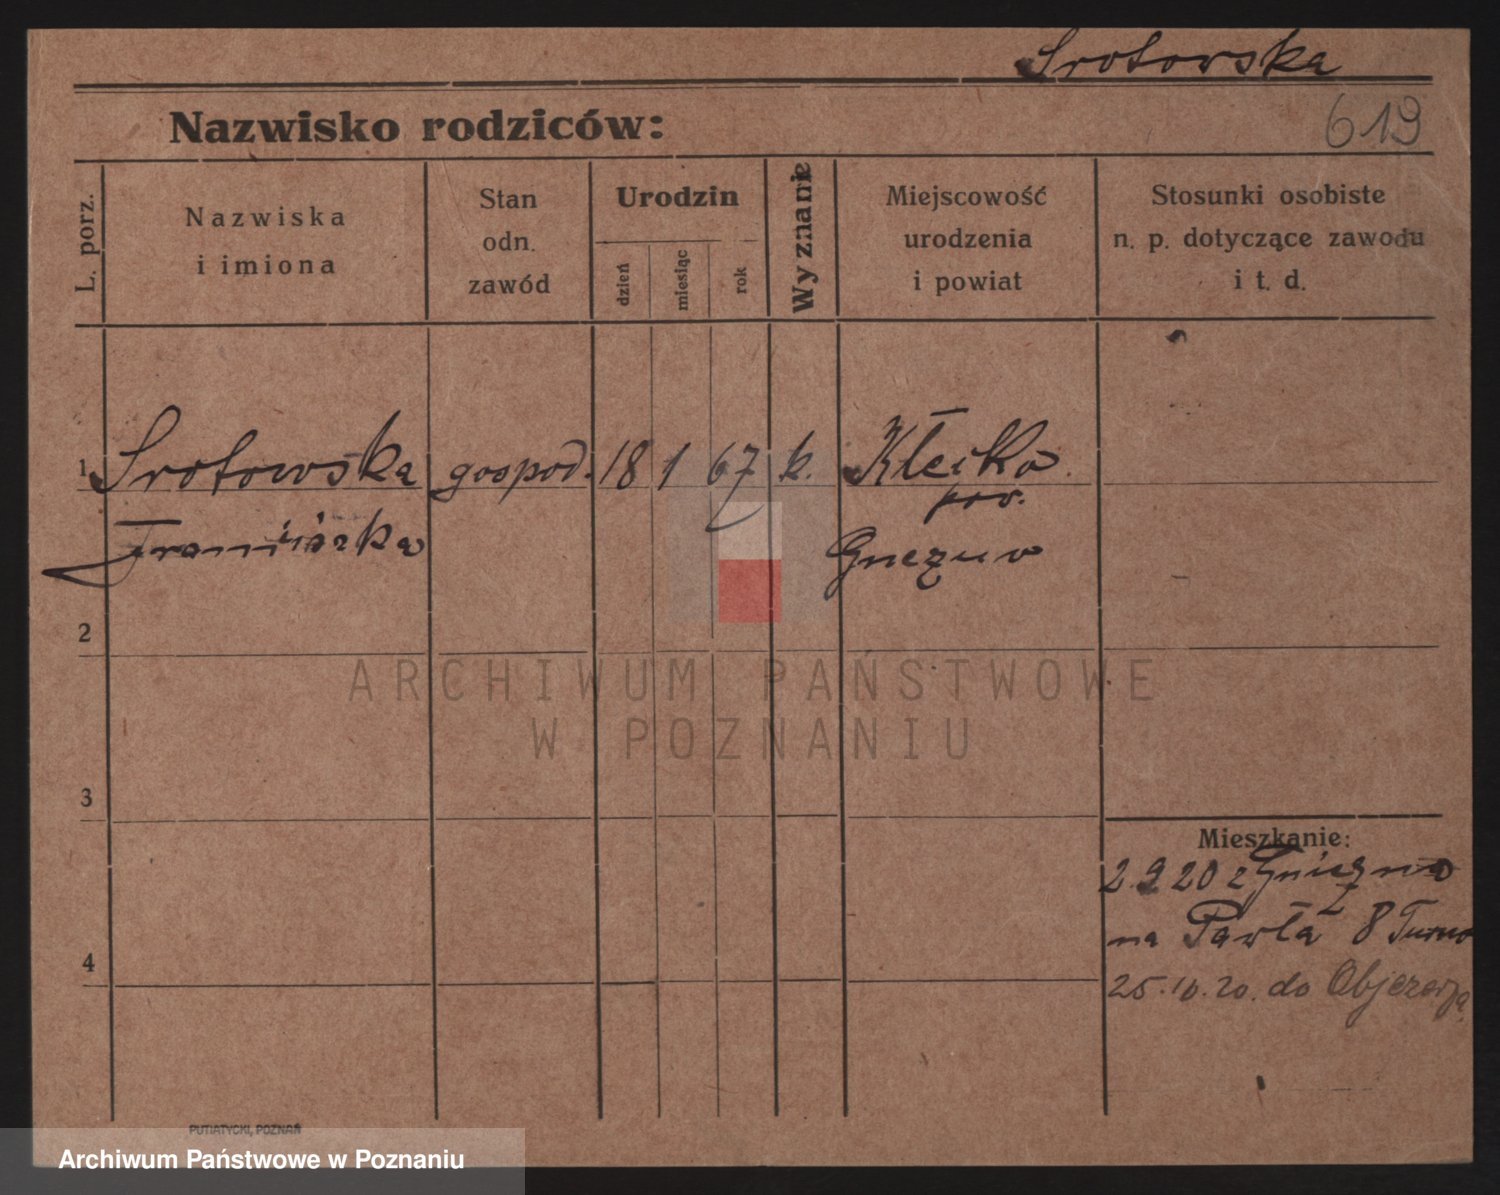 Srotowska
619
Nazwisko rodziców:
L. porz.
Nazwiska
i imiona
Stan
odn.
zawód
Urodzin
dzień
miesiąc
rok
Wyznanie
Miejscowość
urodzenia
i powiat
Stosunki osobiste
n. p. dotyczące zawodu
i t. d.
1 Srotowska gospod. 18 1 67 k. Kłecko
pow.
Franciszka
2
ARCHIWUM PAŃSTWOWE
W POZNANIU
3
Mieszkanie:
2.9 20 z Gniezna
na Pawła 8
4
25.10.20. do
PUTIATYCKI, POZNAŃ
Archiwum Państwowe w Poznaniu